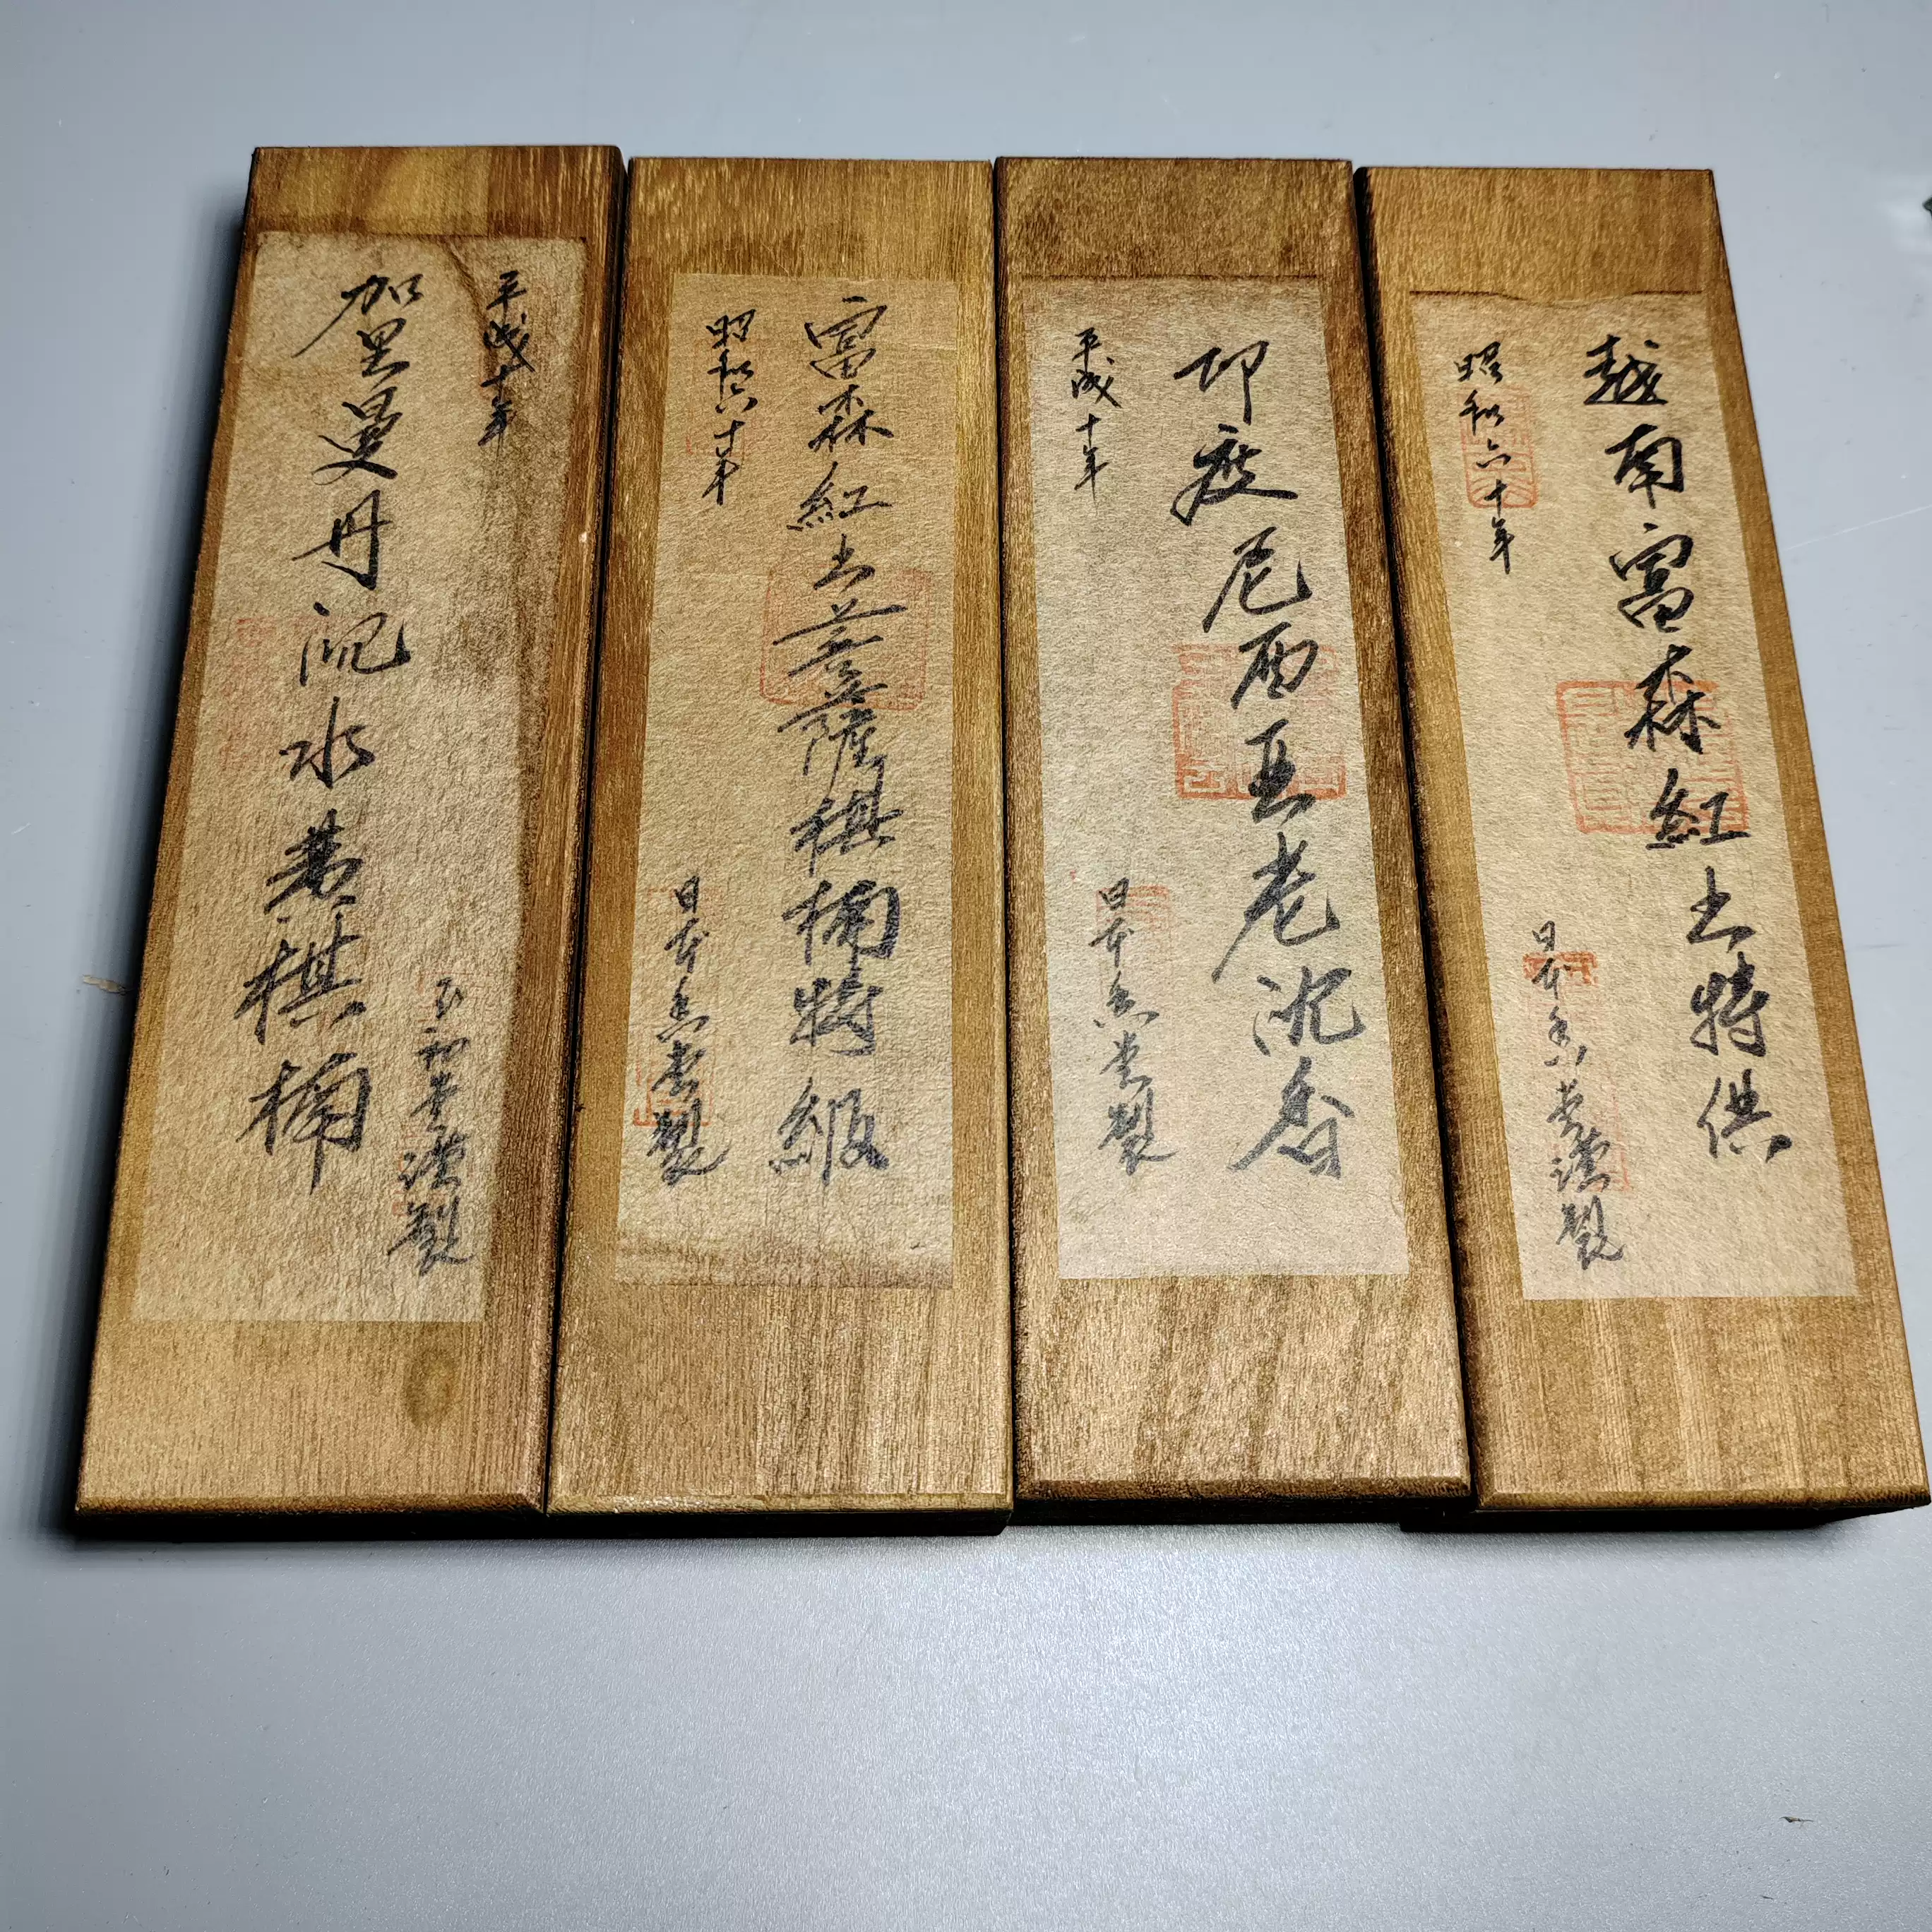 平成十年
加里曼丹沉水黄棋楠
玉初堂謹製
富森紅土菩薩棋楠特級
昭和六十年
日本香堂製
印度尼西亞老沉香
平成十年
日本香堂製
越南富森紅土特供
昭和六十年
日本香堂謹製